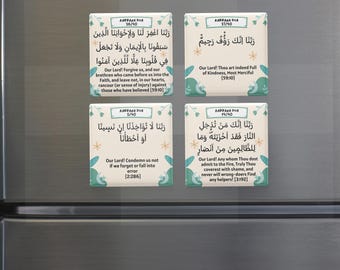 RABBANA DUA
38/40
رَبَّنَا اغْفِرْ لَنَا وَلِإِخْوَانِنَا الَّذِينَ
سَبَقُونَا بِالْإِيمَانِ وَلَا تَجْعَلْ
فِي قُلُوبِنَا غِلًّا لِلَّذِينَ آمَنُوا
Our Lord! Forgive us, and our
brethren who came before us into the
Faith, and leave not, in our hearts,
rancour (or sense of injury) against
those who have believed [59:10]
RABBANA DUA
رَبَّنَا إِنَّكَ رَءُوفٌ رَحِيمٌ
Our Lord! Thou art indeed Full
of Kindness, Most Merciful
[59:10]
RABBANA DUA
5/40
رَبَّنَا لَا تُؤَاخِذْنَا إِنْ نَسِينَا
أَوْ أَخْطَأْنَا
Our Lord! Condemn us not
if we forget or fall into
error
[2:286]
RABBANA DUA
رَبَّنَا إِنَّكَ مَنْ تُدْخِلِ
النَّارَ فَقَدْ أَخْزَيْتَهُ وَمَا
لِلظَّالِمِينَ مِنْ أَنْصَارٍ
Our Lord! Any whom Thou dost
admit to the Fire, Truly Thou
coverest with shame, and
never will wrong-doers Find
any helpers! [3:192]